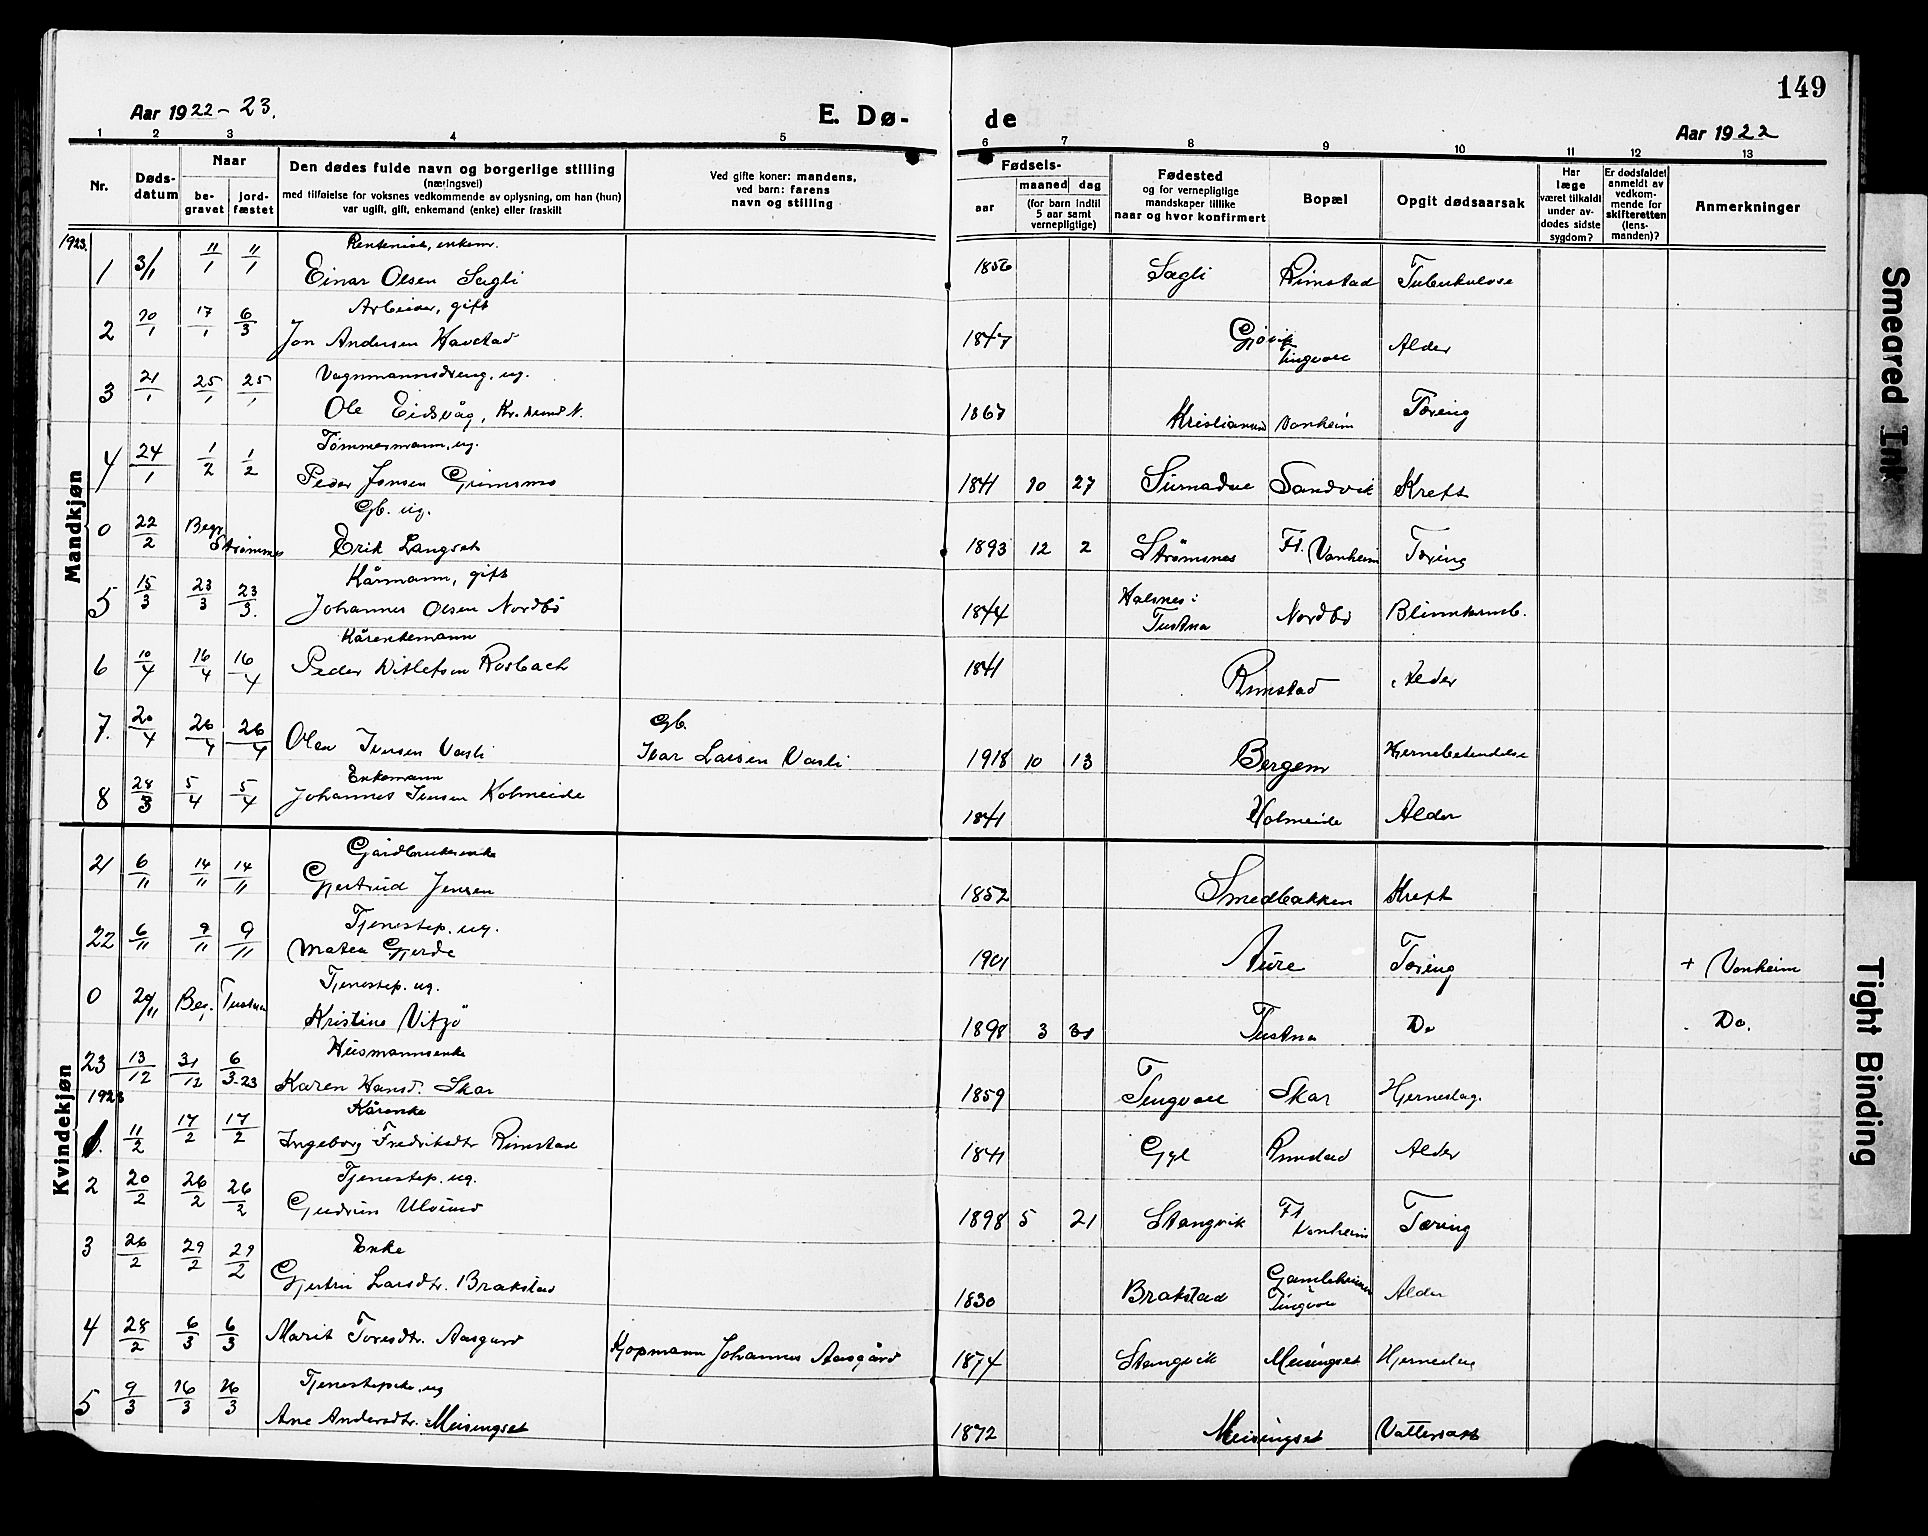 149
Aar 1922-23.
E. Dø-
de
Aar 1922
1 2 3 4 5 6 7 8 9 10 11 12 13
Nr.
Døds-
datum
Naar
be-
gravet
jord-
fæstet
Den dødes fulde navn og borgerlige stilling
(næringsvei)
med tilføielse for voksnes vedkommende av oplysning, om han (hun)
var ugift, gift, enkemand (enke) eller fraskilt
Ved gifte koner: mandens,
ved barn: farens
navn og stilling
Fødsels-
aar
maaned dag
(for barn indtil
5 aar samt
vernepligtige)
Fødested
og for vernepligtige
mandskaper tillike
naar og hvor konfirmert
Bopæl
Opgit dødsaarsak
Har
læge
været tilkaldt
under av-
dødes sidste
sygdom?
Er dødsfaldet
anmeldt av
vedkom-
mende for
skifteretten
(lens-
manden)?
Anmerkninger
Mandkjøn
1923.
Rentenist, enkem.
1 3/1 11/1 11/1 Einar Olsen Sægli 1856 Sægli Rimstad Tuberkulose
Arbeider, gift
2 10/1 17/1 6/3 Jon Andersen Havstad 1847 Gjøvik Tingvoll Alder
Vognmannsdreng, ug.
3 21/1 25/1 25/1 Ole Eidsvåg, Kr.sund N. 1867 Kristiansund Vonheim Tæring
Tømmermann, ug.
4 24/1 1/2 1/2 Peder Jonsen Grimsmo 1841 10 27 Surnadal Sandvik Kreft
Gb. ug.
0 22/2 Begr. Strømsnes Erik Langset 1893 12 2 Strømsnes F.t. Vonheim Tæring
Kårmann, gift
5 15/3 23/3 23/3. Johannes Olsen Nordbø 1844 Halsnes i Tustna Nordbø Blindtarmb.
Kårenkemann
6 10/4 16/4 16/4 Peder Ditlefsen Rosbach 1841 Rimstad Alder
Gb.
7. 20/4 26/4 26/4 Olea Iversen Vasli Ivar Larsen Vasli 1918 10 13 Bergem Hjernebetendelse
Enkemann
8 28/3 5/4 5/4 Johannes Iversen Holmeide 1841 Holmeide Alder
Kvindekjøn
Gårdbrukerenke
21 6/11 14/11 14/11 Gjertrud Jensen 1852 Smedbakken Kreft
Tjenestep. ug.
22 6/11 9/11 9/11 Matea Gjerde 1901 Aure Tæring + Vonheim
Tjenestep. ug.
0 29/11 Beg. Tustna Kristine Vitsø 1898 3 31 Tustna Do Do.
Husmannsenke
23 13/12 31/12 6/3-23 Karen Hansd. Skar 1859 Tingvoll Skar Hjerneslag.
1923
Kårenke
1. 11/2 17/2 17/2 Ingeborg Fredriksdtr Rimstad 1841 Gyl Rimstad Alder
Tjenestep. ug.
2 20/2 26/2 26/2 Gudrun Ulvund 1898 5 21 Stangvik F.t. Vonheim Tæring
Enke
3 26/2 29/2 29/2 Gjertru Larsdtr. Brakstad 1830 Brakstad Gamleheimen Tingvoll Alder
4 28/2 6/3 6/3 Marit Toresdtr. Aasgard Kjøpmann Johannes Aasgård 1874 Stangvik Meisingset Hjerneslag
Tjenestepike, ug
5 9/3 16/3 16/3 Ane Andersdtr. Meisingset 1872 Meisingset Vattersott
Smeared Ink
Tight Binding